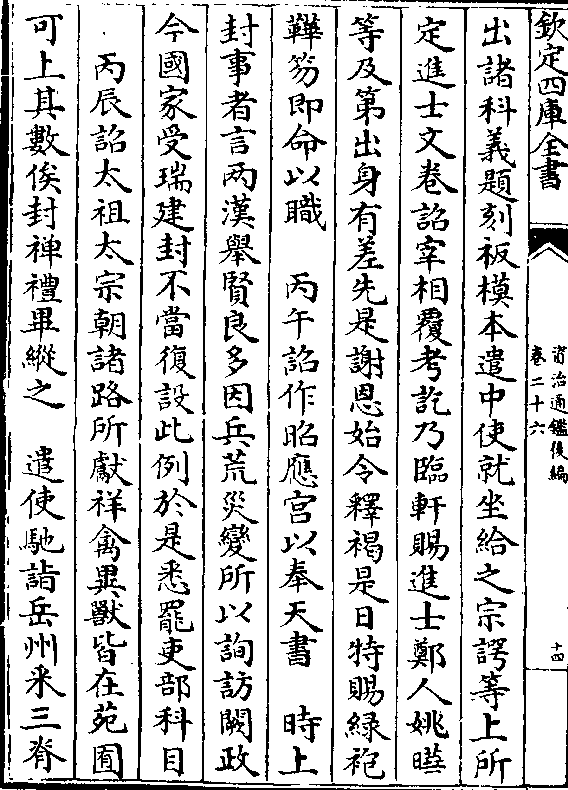 欽定四庫全書
資治通鑑後編
卷二十六
十四
出諸科義題刻板模本遣中使就坐給之宗諤等上所
定進士文卷詔宰相覆考訖乃臨軒賜進士鄭人姚曄
等及第出身有差先是謝恩始令釋褐是日特賜綠袍
鞾笏即命以職　丙午詔作昭應宮以奉天書　時上
封事者言兩漢舉賢良多因兵荒災變所以詢訪闕政
今國家受瑞建封不當復設此例於是悉罷吏部科目
丙辰詔太祖太宗朝諸路所獻祥禽異獸皆在苑囿
可上其數俟封禅禮畢縱之　遣使馳詣岳州采三脊